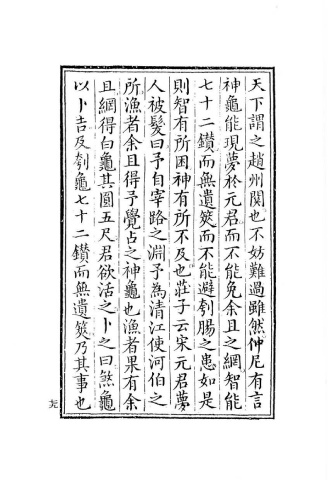 天下謂之趙州関也不妨難過雖然仲尼有言
神龜能現夢於元君而不能免余且之網智能
七十二鑽而無遺筴而不能避刳腸之患如是
則智有所困神有所不及也莊子云宋元君夢
人被髮曰予自宰路之淵予為清江使河伯之
所漁者余且得予覺占之神龜也漁者果有余
且網得白龜其圓五尺君欲活之卜之曰煞龜
以卜吉乃刳龜七十二鑽而無遺筴乃其事也